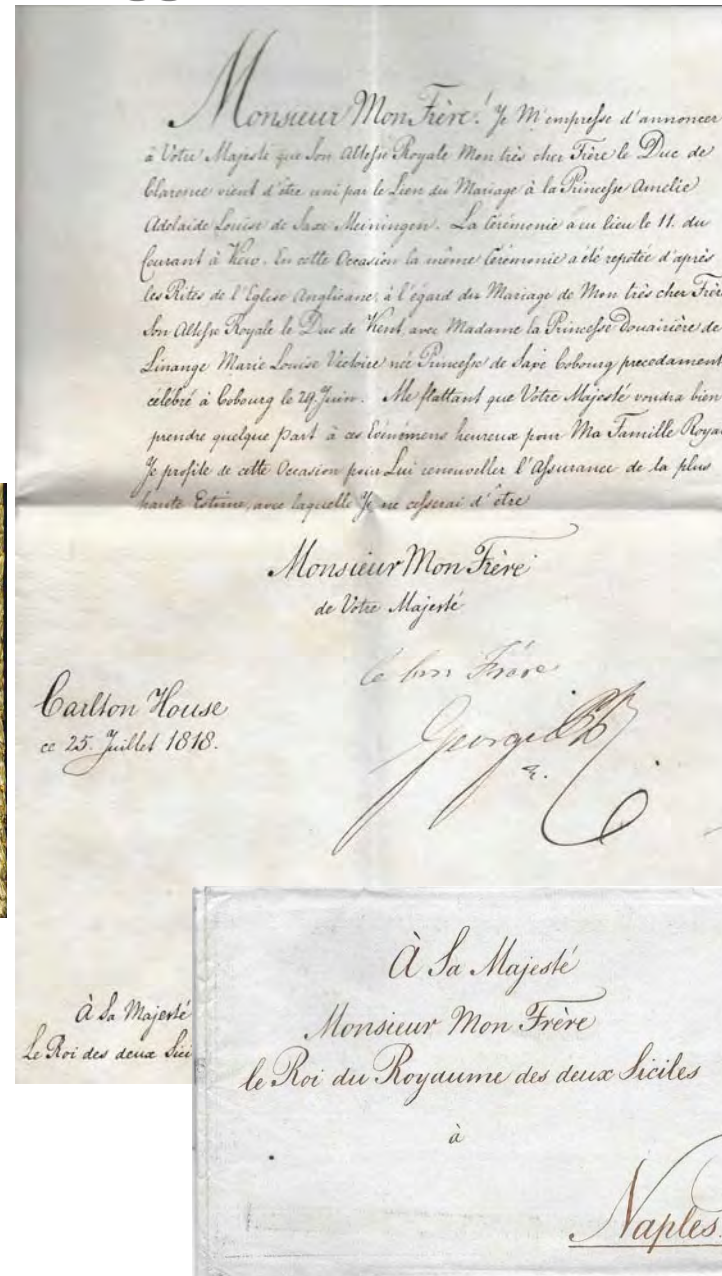 Monsieur Mon Frère! Je M'empresse d'annoncer
à Votre Majesté que Son Altesse Royale Mon très cher Frère le Duc de
Clarence vient d'être uni par le Lien du Mariage à la Princesse Amelie
Adelaide Louise de Saxe Meiningen. La Cérémonie a eu lieu le 11. du
Courant à Kew. En cette Occasion la même Cérémonie a été repetée d'après
les Rites de l'Eglise Anglicane, à l'égard du Mariage de Mon très cher Frère
Son Altesse Royale le Duc de Kent, avec Madame la Princesse Douairière de
Linange Marie Louise Victoire née Princesse de Saxe Cobourg precedament
célébré à Cobourg le 29. Juin. Me flattant que Votre Majesté voudra bien
prendre quelque Part à ces Evénémens heureux pour Ma Famille
Je profite de cette Occasion pour Lui renouveller l'Assurance de la plus
haute Estime, avec laquelle Je ne cesserai d'être
Monsieur Mon Frère
de Votre Majesté
le bon Frère
George
Carlton House
ce 25. Juillet 1818.
À Sa Majesté
Le Roi des deux
À Sa Majesté
Monsieur Mon Frère
le Roi du Royaume des deux Siciles
à
Naples.